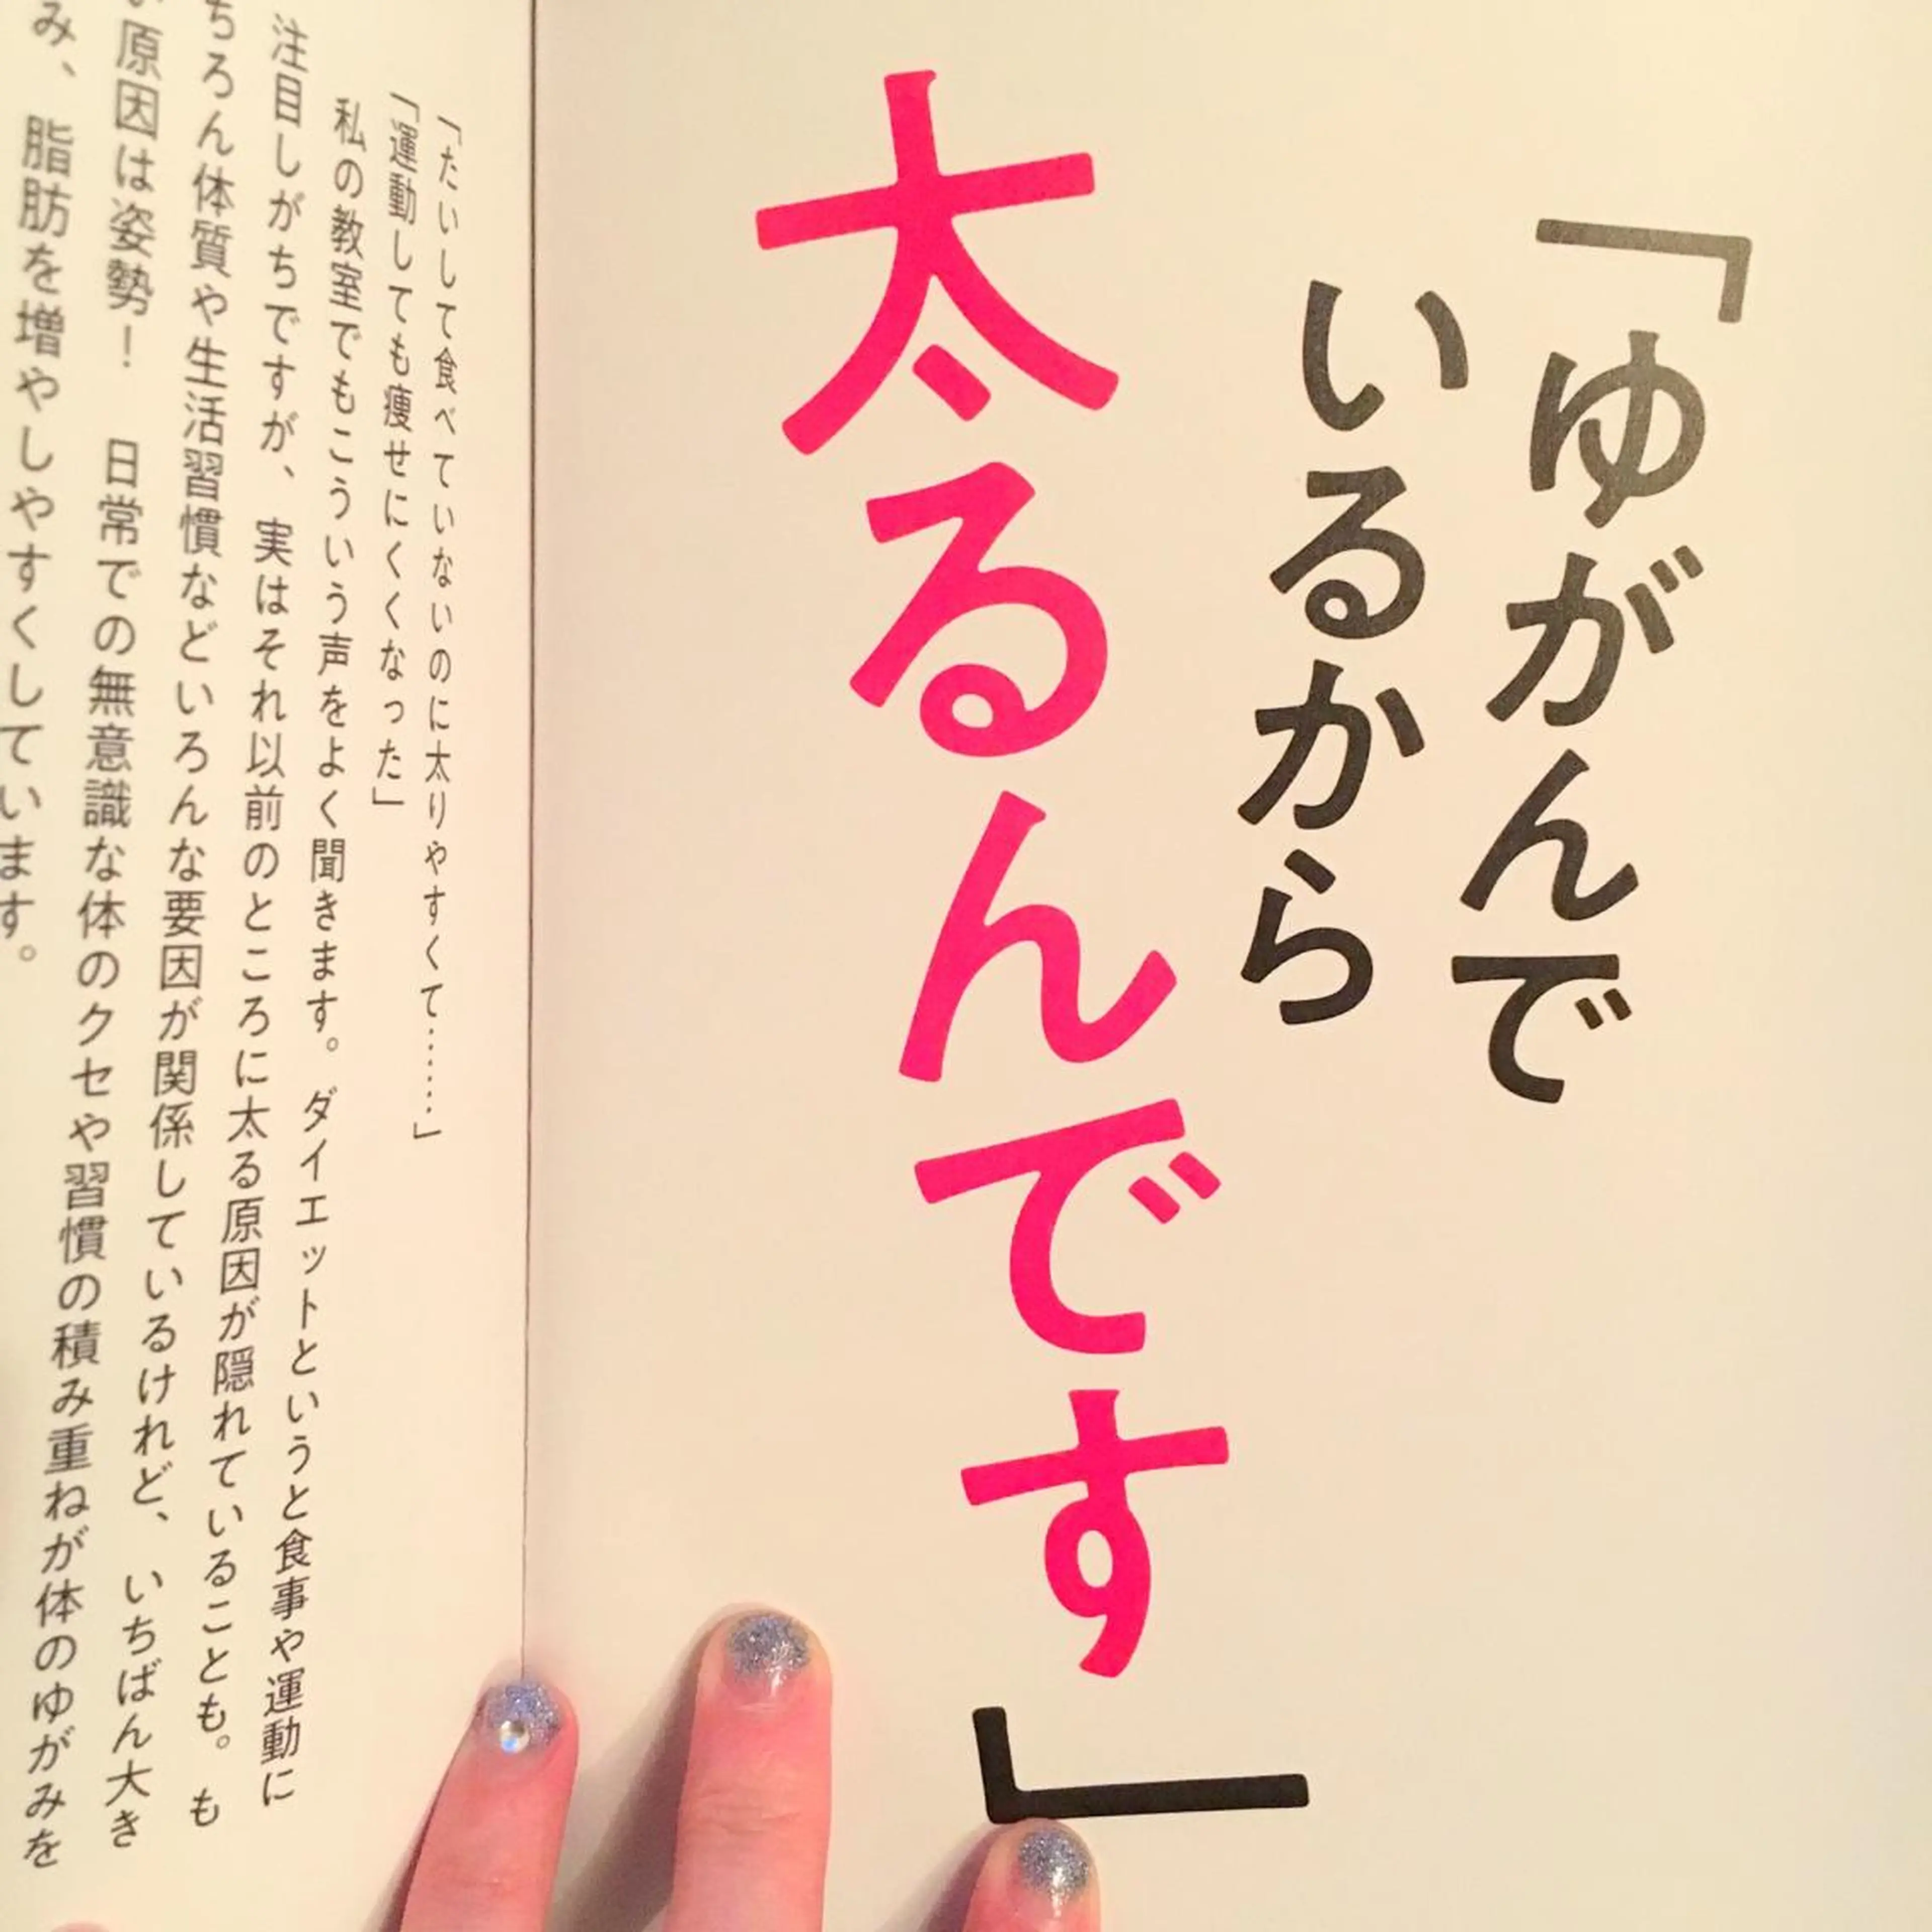 「ゆがんで
いるから
太るんです」
「たいして食べていないのに太りやすくて……」
「運動しても痩せにくくなった」
私の教室でもこういう声をよく聞きます。ダイエットというと食事や運動に
注目しがちですが、実はそれ以前のところに太る原因が隠れていることも。も
ちろん体質や生活習慣などいろんな要因が関係しているけれど、いちばん大き
い原因は姿勢！　日常での無意識な体のクセや習慣の積み重ねが体のゆがみを
み、脂肪を増やしやすくしています。